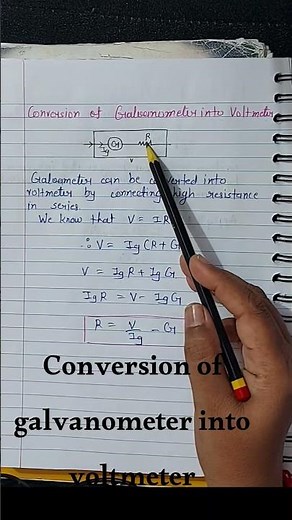 Conversion of Galvanometer into Voltmeter
R
G
Ig
V
Galvanometer can be converted into
voltmeter by connecting high resistance
in series.
We know that V = IR
∴ V = Ig (R + G)
V = Ig R + Ig G
Ig R = V - Ig G
R = V/Ig - G
Conversion of
galvanometer into
voltmeter